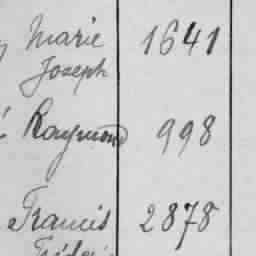 Marie 1641
Joseph
Raymond 998
Francis 2878